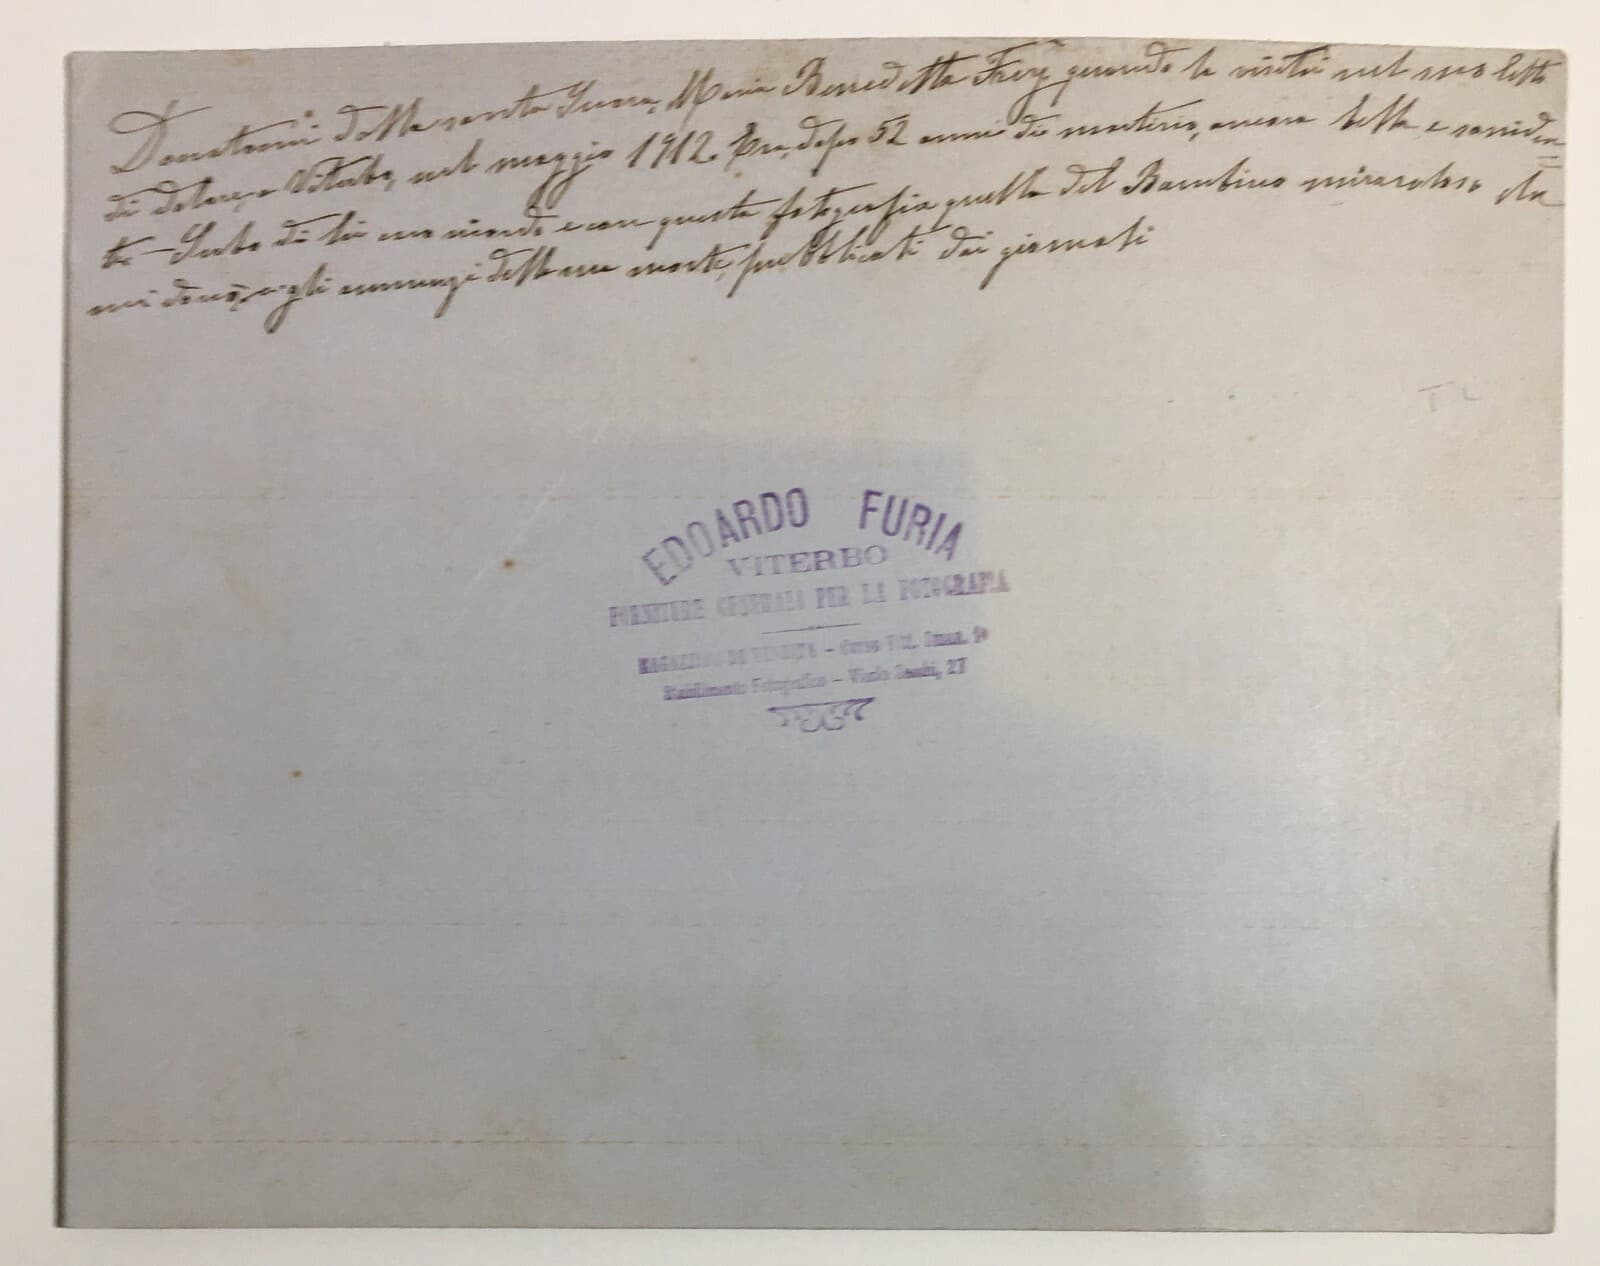 Donatami dalla santa Suora, Maria Benedetta Frey quando la visitai nel suo letto
di dolore, a Viterbo, nel maggio 1912. Era, dopo 52 anni di martirio, ancora bella e sorriden=
te - Serbo di lei un ricordo e con questa fotografia quella del Bambino miracoloso che
mi donò, e gli annunzi della sua morte, pubblicati dai giornali
T L
EDOARDO FURIA
VITERBO
FORNITURE GENERALI PER LA FOTOGRAFIA
MAGAZZINO DI VENDITA - Corso Vitt. Eman.
Stabilimento Fotografico - 27